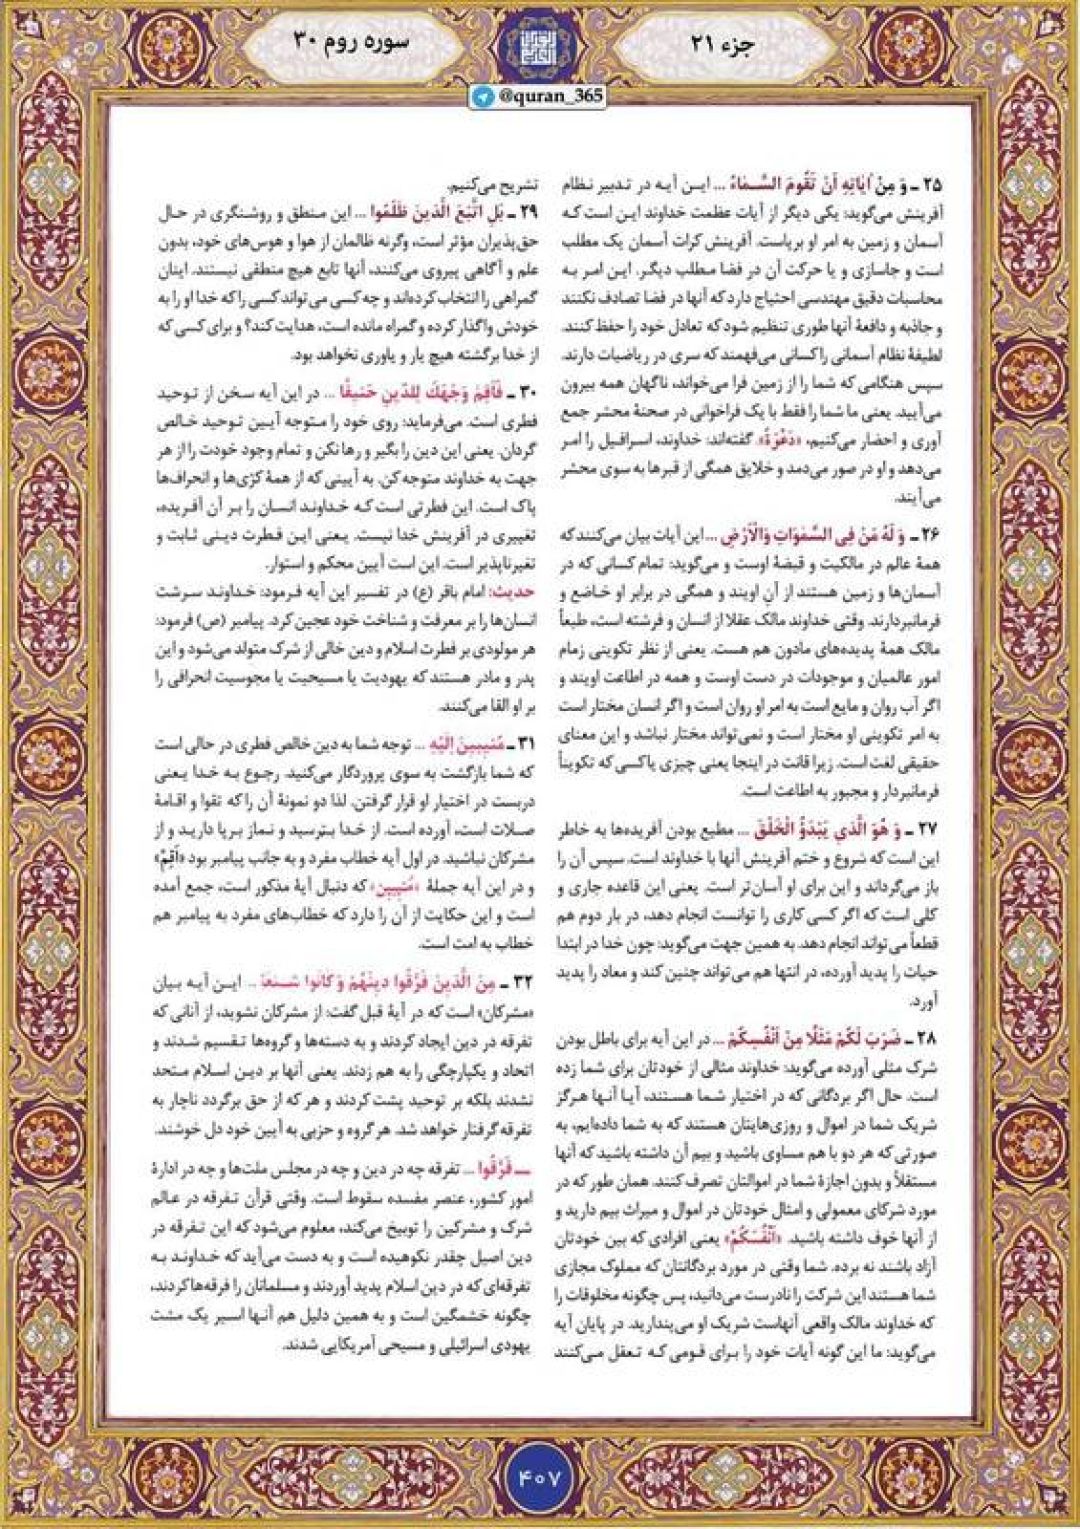 جزء ۲۱
سوره روم ۳۰
@quran_365
۲۵ ـ وَ مِنْ اٰیَاتِهِ اَنْ تَقُومَ السَّمَاءُ ... این آیه در تدبیر نظام
آفرینش می‌گوید: یکی دیگر از آیات عظمت خداوند این است که
آسمان و زمین به امر او برپاست. آفرینش کرات آسمان یک مطلب
است و جاسازی و یا حرکت آن در فضا مطلب دیگر. این امر به
محاسبات دقیق مهندسی احتیاج دارد که آنها در فضا تصادف نکنند
و جاذبه و دافعهٔ آنها طوری تنظیم شود که تعادل خود را حفظ کنند.
لطیفهٔ نظام آسمانی را کسانی می‌فهمند که سری در ریاضیات دارند.
سپس هنگامی که شما را از زمین فرا می‌خواند، ناگهان همه بیرون
می‌آیید. یعنی ما شما را فقط با یک فراخوانی در صحنهٔ محشر جمع
آوری و احضار می‌کنیم، «دَعْوَةً». گفته‌اند: خداوند، اسرافیل را امر
می‌دهد و او در صور می‌دمد و خلایق همگی از قبرها به سوی محشر
می‌آیند.
۲۶ ـ وَ لَهُ مَنْ فِی السَّمٰوَاتِ وَالْاَرْضِ ... این آیات بیان می‌کنند که
همهٔ عالم در مالکیت و قبضهٔ اوست و می‌گوید: تمام کسانی که در
آسمان‌ها و زمین هستند از آنِ اویند و همگی در برابر او خاضع و
فرمانبردارند. وقتی خداوند مالک عقلا از انسان و فرشته است، طبعاً
مالک همهٔ پدیده‌های مادون هم هست. یعنی از نظر تکوینی زمام
امور عالمیان و موجودات در دست اوست و همه در اطاعت اویند و
اگر آب روان و مایع است به امر او روان است و اگر انسان مختار است
به امر تکوینی او مختار است و نمی‌تواند مختار نباشد و این معنای
حقیقی لغت است. زیرا قانت در اینجا یعنی چیزی یا کسی که تکویناً
فرمانبردار و مجبور به اطاعت است.
۲۷ ـ وَ هُوَ الَّذِی یَبْدَؤُا الْخَلْقَ ... مطیع بودن آفریده‌ها به خاطر
این است که شروع و ختم آفرینش آنها با خداوند است. سپس آن را
باز می‌گرداند و این برای او آسان‌تر است. یعنی این قاعده جاری و
کلی است که اگر کسی کاری را توانست انجام دهد، در بار دوم هم
قطعاً می‌تواند انجام دهد. به همین جهت می‌گوید: چون خدا در ابتدا
حیات را پدید آورده، در انتها هم می‌تواند چنین کند و معاد را پدید
آورد.
۲۸ ـ ضَرَبَ لَکُمْ مَثَلًا مِنْ اَنْفُسِکُمْ ... در این آیه برای باطل بودن
شرک مثلی آورده می‌گوید: خداوند مثالی از خودتان برای شما زده
است. حال اگر بردگانی که در اختیار شما هستند، آیا آنها هرگز
شریک شما در اموال و روزی‌هایتان هستند که به شما داده‌ایم، به
صورتی که هر دو با هم مساوی باشید و بیم آن داشته باشید که آنها
مستقلاً و بدون اجازهٔ شما در اموالتان تصرف کنند. همان طور که در
مورد شرکای معمولی و امثال خودتان در اموال و میراث بیم دارید و
از آنها خوف داشته باشید. «اَنْفُسَکُمْ» یعنی افرادی که بین خودتان
آزاد باشند نه برده. شما وقتی در مورد بردگانتان که مملوک مجازی
شما هستند این شرکت را نادرست می‌دانید، پس چگونه مخلوقات را
که خداوند مالک واقعی آنهاست شریک او می‌پندارید. در پایان آیه
می‌گوید: ما این گونه آیات خود را برای قومی که تعقل می‌کنند
تشریح می‌کنیم.
۲۹ ـ بَلِ اتَّبَعَ الَّذِینَ ظَلَمُوا ... این منطق و روشنگری در حال
حق‌پذیران مؤثر است، وگرنه ظالمان از هوا و هوس‌های خود، بدون
علم و آگاهی پیروی می‌کنند، آنها تابع هیچ منطقی نیستند. اینان
گمراهی را انتخاب کرده‌اند و چه کسی می‌تواند کسی را که خدا او را به
خودش واگذار کرده و گمراه مانده است، هدایت کند؟ و برای کسی که
از خدا برگشته هیچ یار و یاوری نخواهد بود.
۳۰ ـ فَاَقِمْ وَجْهَكَ لِلدِّینِ حَنِیفًا ... در این آیه سخن از توحید
فطری است. می‌فرماید: روی خود را متوجه آیین توحید خالص
گردان. یعنی این دین را بگیر و رها نکن و تمام وجود خودت را از هر
جهت به خداوند متوجه کن. به آیینی که از همهٔ کژی‌ها و انحراف‌ها
پاک است. این فطرتی است که خداوند انسان را بر آن آفریده،
تغییری در آفرینش خدا نیست. یعنی این فطرت دینی ثابت و
تغیرناپذیر است. این است آیین محکم و استوار.
حدیث: امام باقر (ع) در تفسیر این آیه فرمود: خداوند سرشت
انسان‌ها را بر معرفت و شناخت خود عجین کرد. پیامبر (ص) فرمود:
هر مولودی بر فطرت اسلام و دین خالی از شرک متولد می‌شود و این
پدر و مادر هستند که یهودیت یا مسیحیت یا مجوسیت انحرافی را
بر او القا می‌کنند.
۳۱ ـ مُنِیبِینَ اِلَیْهِ ... توجه شما به دین خالص فطری در حالی است
که شما بازگشت به سوی پروردگار می‌کنید. رجوع به خدا یعنی
دربست در اختیار او قرار گرفتن. لذا دو نمونهٔ آن را که تقوا و اقامهٔ
صلات است، آورده است. از خدا بترسید و نماز برپا دارید و از
مشرکان نباشید. در اول آیه خطاب مفرد و به جانب پیامبر بود «اَقِمْ»
و در این آیه جملهٔ «مُنِیبِینَ» که دنبال آیهٔ مذکور است، جمع آمده
است و این حکایت از آن را دارد که خطاب‌های مفرد به پیامبر هم
خطاب به امت است.
۳۲ ـ مِنَ الَّذِینَ فَرَّقُوا دِینَهُمْ وَ کَانُوا شِیَعًا ... این آیه بیان
«مشرکان» است که در آیهٔ قبل گفت: از مشرکان نشوید، از آنانی که
تفرقه در دین ایجاد کردند و به دسته‌ها و گروه‌ها تقسیم شدند و
اتحاد و یکپارچگی را به هم زدند. یعنی آنها بر دین اسلام متحد
نشدند بلکه بر توحید پشت کردند و هر که از حق برگردد ناچار به
تفرقه گرفتار خواهد شد. هر گروه و حزبی به آیین خود دل خوشند.
ـــ فَرَّقُوا ... تفرقه چه در دین و چه در مجلس ملت‌ها و چه در ادارهٔ
امور کشور، عنصر مفسده سقوط است. وقتی قرآن تفرقه در عالم
شرک و مشرکین را توبیخ می‌کند، معلوم می‌شود که این تفرقه در
دین اصیل چقدر نکوهیده است و به دست می‌آید که خداوند به
تفرقه‌ای که در دین اسلام پدید آوردند و مسلمانان را فرقه‌ها کردند،
چگونه خشمگین است و به همین دلیل هم آنها اسیر یک مشت
یهودی اسرائیلی و مسیحی آمریکایی شدند.
۴۰۷